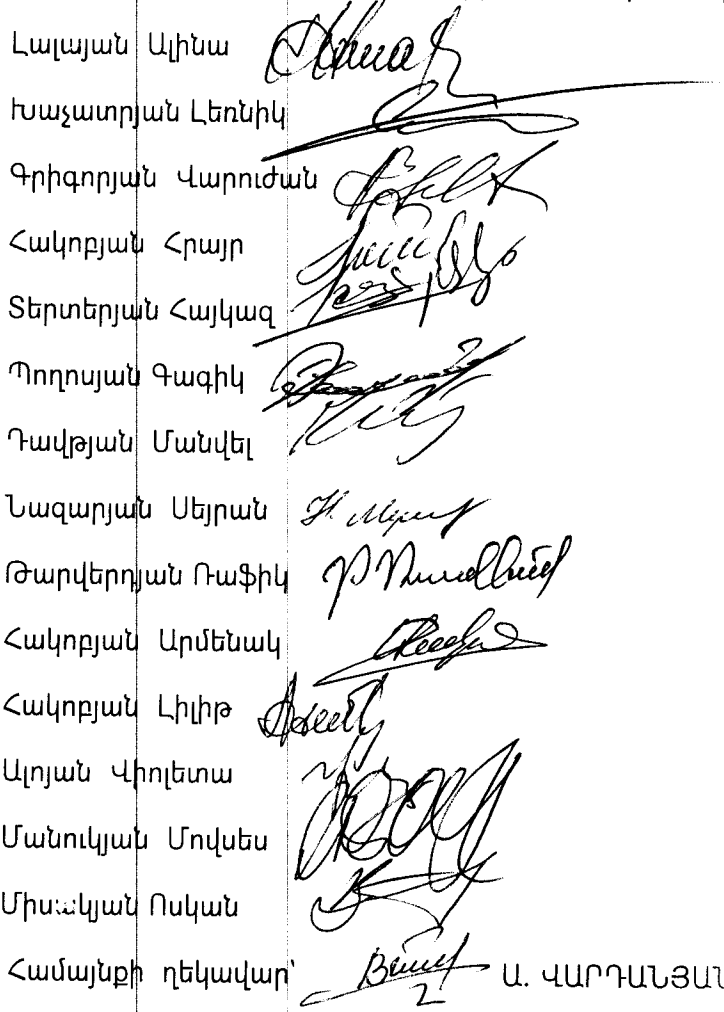 Լալայան Ալինա
Խաչատրյան Լեռնիկ
Գրիգորյան Վարուժան
Հակոբյան Հրայր
Տերտերյան Հայկազ
Պողոսյան Գագիկ
Դավթյան Մանվել
Նազարյան Սեյրան
Թարվերդյան Ռաֆիկ
Հակոբյան Արմենակ
Հակոբյան Լիլիթ
Ալոյան Վիոլետա
Մանուկյան Մովսես
Միսակյան Ոսկան
Համայնքի ղեկավար՝ Ա. ՎԱՐԴԱՆՅԱՆ